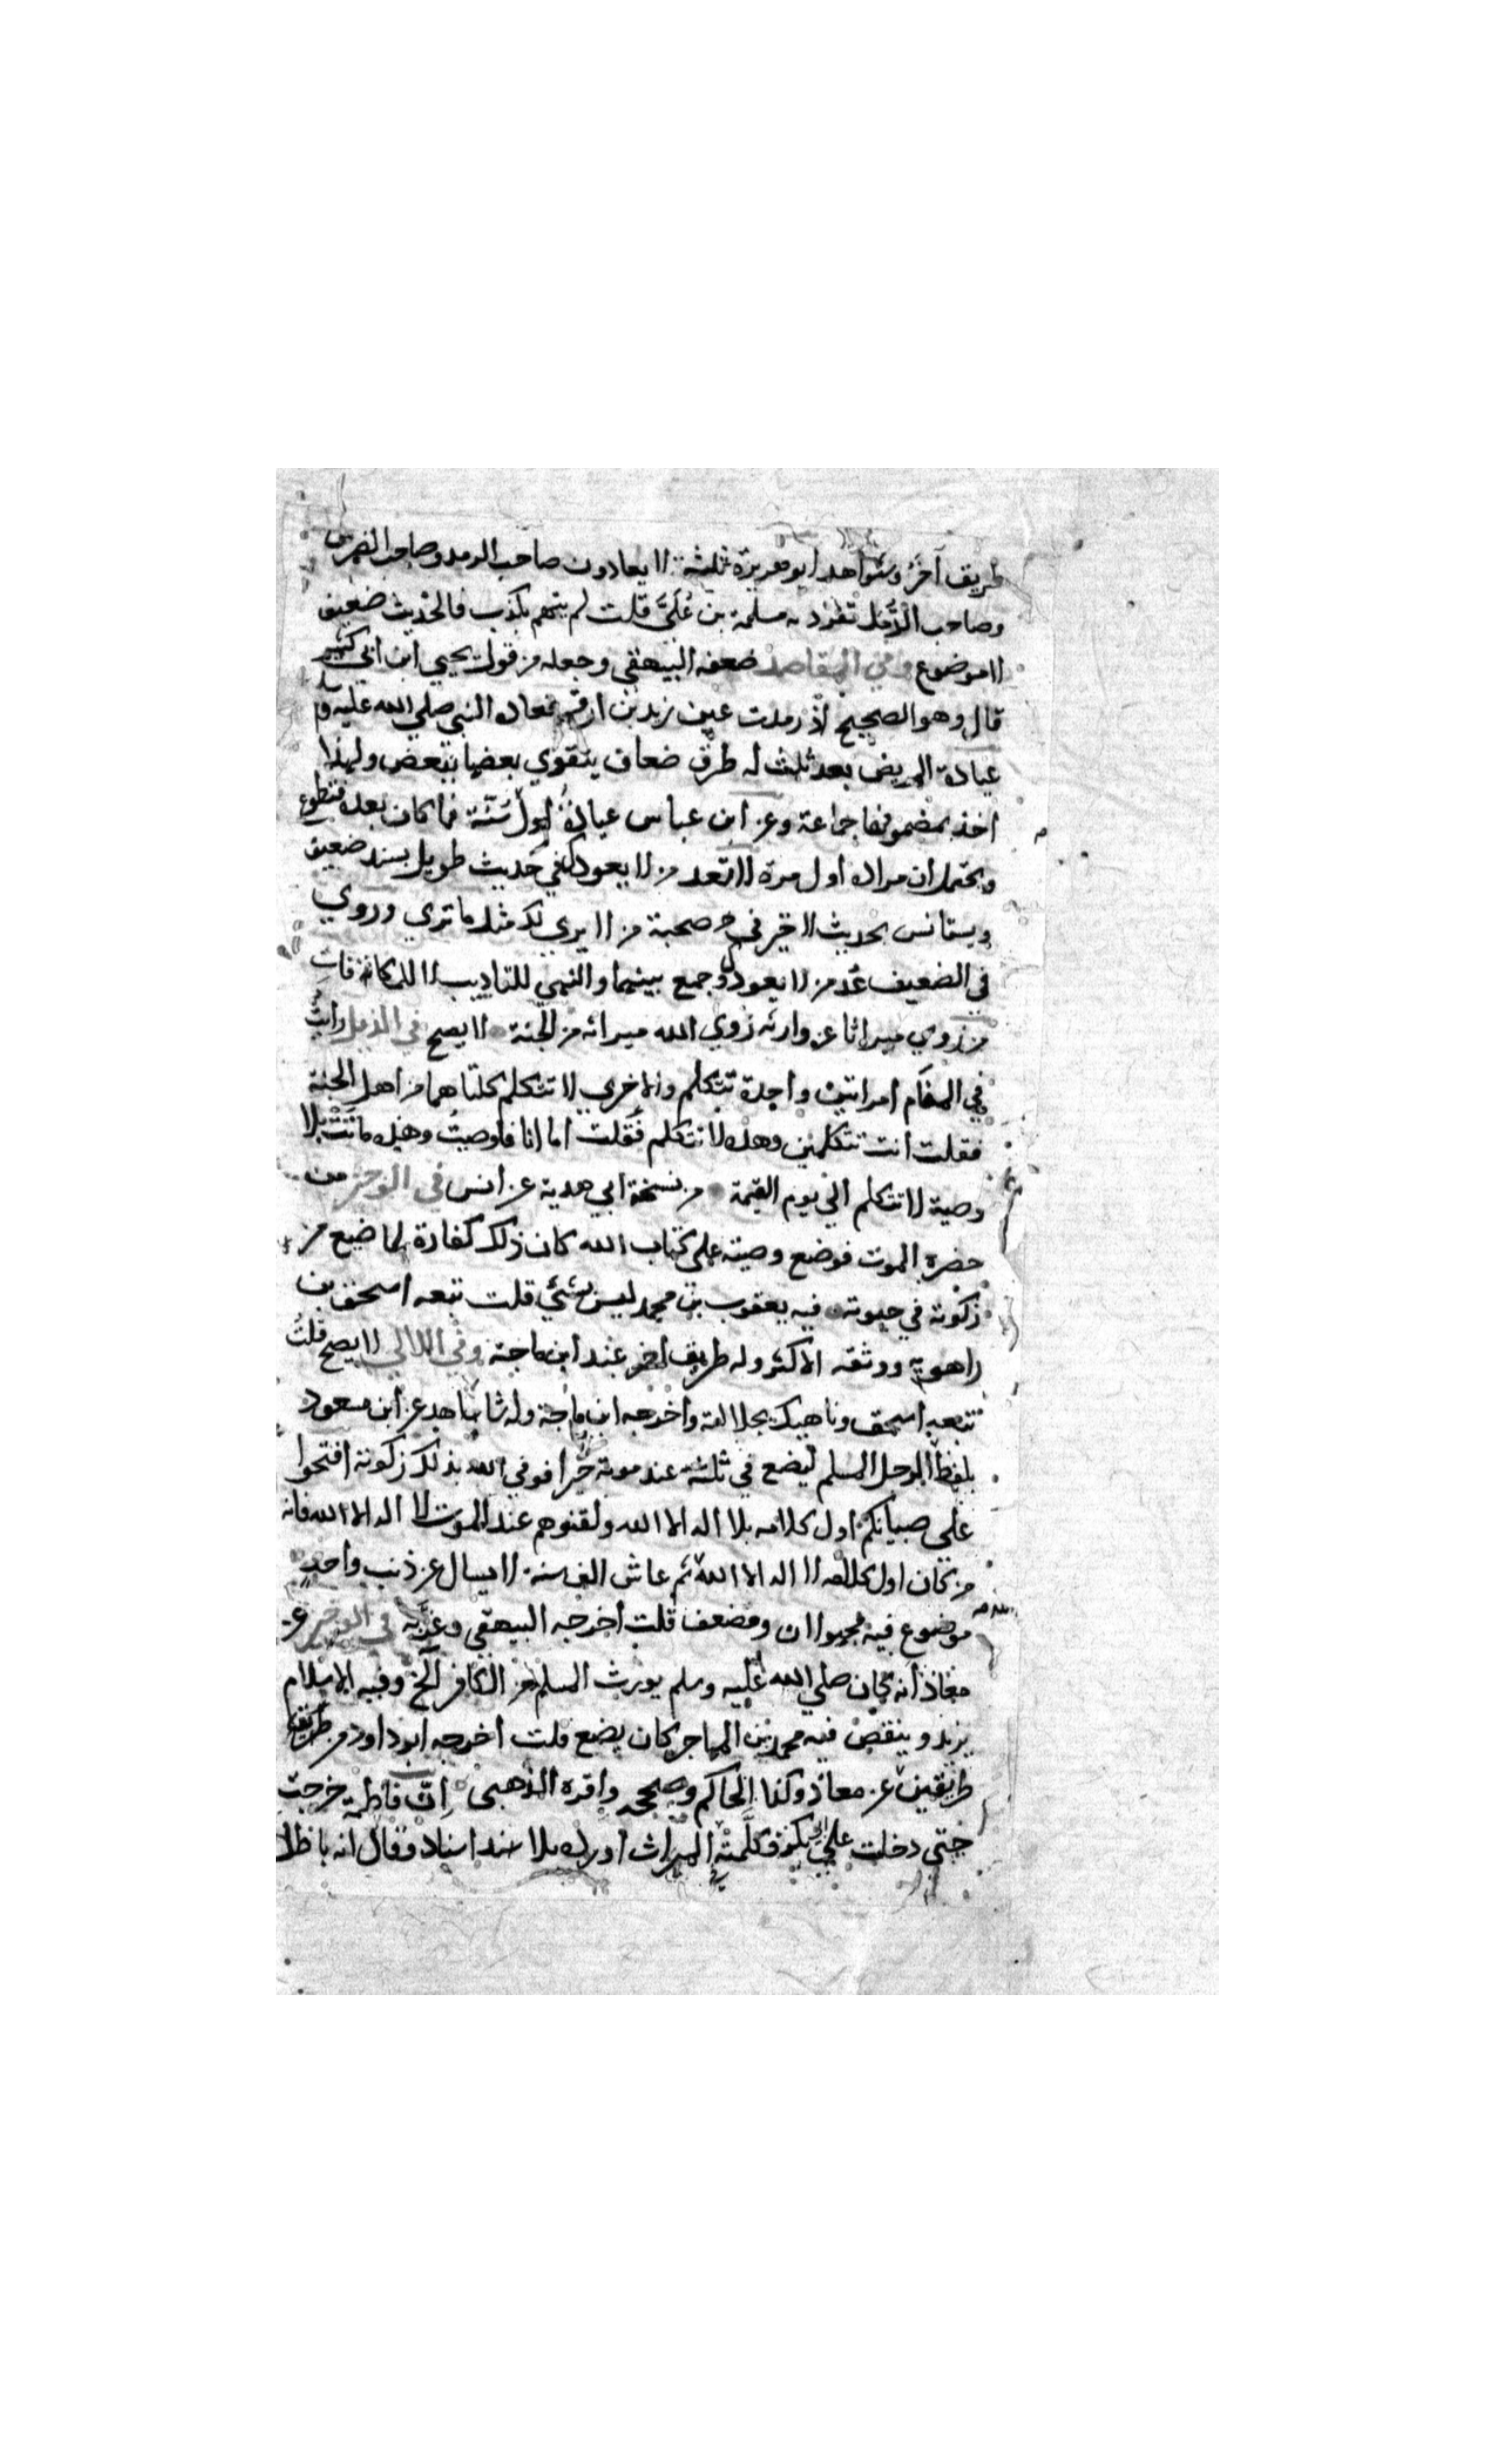 طريق آخر وشواهد ابو هريرة ثلثة لا يعادون صاحب الرمد وصاحب الضرس
وصاحب الدمل تفرد به مسلمة بن علي قلت لم يتهم بكذب فالحديث ضعيف
لا موضوع وفي المقاصد ضعفه البيهقي وجعله من قول يحيي ابن ابي كثير
قال وهو الصحيح اذ رمدت عين زيد بن ارقم فعاده النبي صلي الله عليه و
عيادة المريض بعد ثلث له طرق ضعاف يتقوي بعضها ببعض ولهذا
اخذ بمضمونها جماعة وعن ابن عباس عيادة اول سنة فما كان بعده فتطوع
ويحتمل ان مراده اول مرة لا تعد من لا يعودك في حديث طويل بسند ضعيف
ويستانس بحديث لا خير في صحبة من لا يري لك مثل ما تري وروي
في الضعيف عد من لا يعودك وجمع بينهما والنهي للتاديب لا للمكافاة
من زوي ميراثا عن وارثه زوي الله ميراثه من الجنة لا يصح في الذيل رايت
في المنام امراتين واحدة تتكلم والاخري لا تتكلم كلتاهما من اهل الجنة
فقلت انت تتكلمين وهذه لا تتكلم فقلت اما انا فاوصيت وهذه ماتت بلا
وصية لا تتكلم الي يوم القيمة من نسخة ابي هدبة عن انس في الوجيز من
حضره الموت فوضع وصيته علي كتاب الله كان ذلك كفارة لما ضيع من
زكوته في حيوته فيه يعقوب بن محمد ليس بشئي قلت تبعه اسحق بن
راهويه ووثقه الاكثر وله طريق اخر عند ابن ماجة وفي اللالي لا يصح قلت
تتبعه اسحق وناهيك بجلالته واخرجه ابن ماجة وله شاهد عن ابن مسعود
بلفظ الرجل المسلم ليضع في ثلثه عند موته خيرا فوفي الله بذلك زكوته افتحوا
علي صبيانكم اول كلامه بلا اله الا الله ولقنوهم عند الموت لا اله الا الله فانه
من كان اول كلامه لا اله الا الله ثم عاش الف سنة لا يسال عن ذنب واحد
موضوع فيه مجهولان ومضعف قلت اخرجه البيهقي وغربه في الوجيز عن
معاذ انه كان صلي الله عليه وسلم يورث المسلم من الكافر الخ وفيه الاسلام
يزيد وينقص فيه محمد بن المهاجر كان يضع قلت اخرجه ابو داود من طريق
طريقين عن معاذ وكذا الحاكم وصححه واقره الذهبي ان فاطمة خرجت
حتي دخلت علي ابي بكر فكلمته الميراث اورده بلا سند اسناد وقال انه باطل